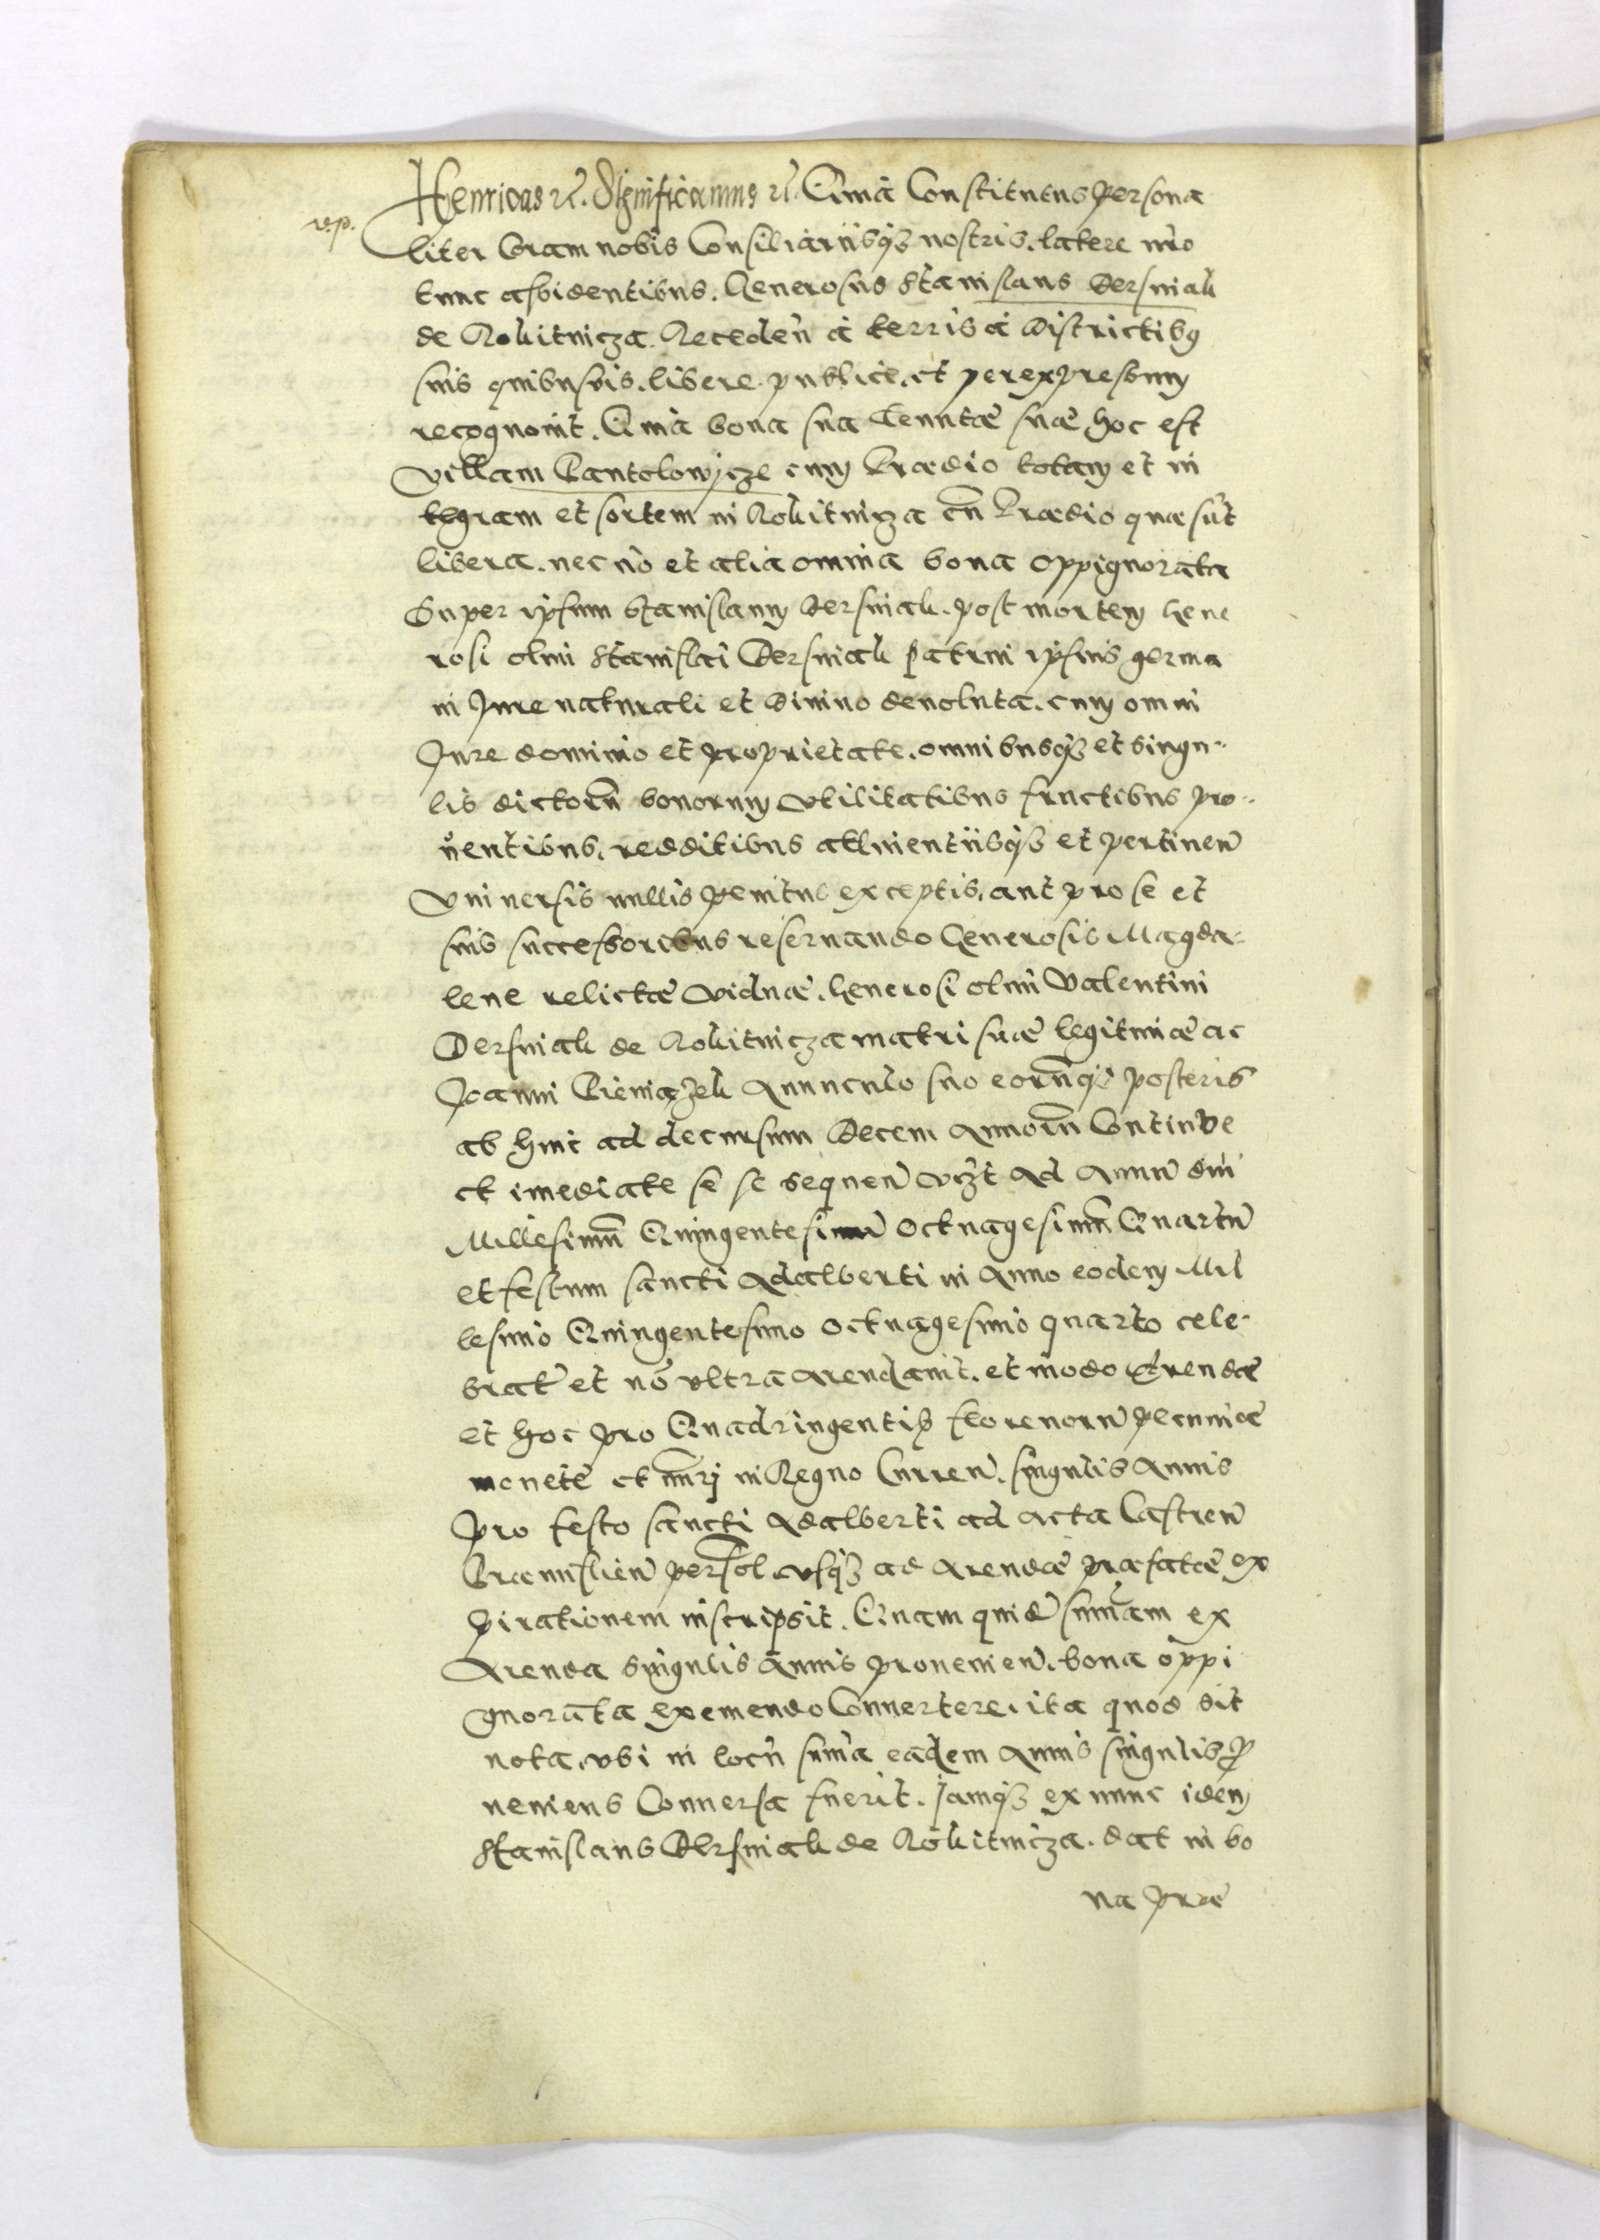 Henricus etc. Significamus etc. Quia Constituens persona
v. p.
liter Coram nobis Consiliariisq3 nostris latere nr̃o
tunc assidentibus. Generosus Stanislaus Dersniak
de Rokitnicza. Recedeñ à terris à districtibus
suis quibusvis. libere publice. et per expressum
recognovit. Quia bona sua tenutæ suæ hoc est
Villam Cantolowicze cum Prædio totam et in
tegram et sortem in Rokitnicza cũ Prædio quæ sũt
libera. nec nõ et alia omnia bona oppignorata
Super ipsum Stanislaum Dersniak. post mortem Gene
rosi olim Stanislai Dersniak patrui ipsius germa
ni Jure naturali et Divino devoluta. cum omni
Jure dominio et proprietate. omnibusq3 et singu-
lis dictorũ bonorum Vtilitatibus fructibus pro-
ventibus. redditibus attinentiisq3 et pertineñ
Vniversis nullis penitus exceptis. aut pro se et
suis successoribus reservando Generosis Magda-
lene relictæ Viduæ. Generosi olim Valentini
Dersniak de Rokitnicza matri suæ legitimæ ac
Joanni Bieniaszek Avunculo suo eorũq3 posteris
ab hinc ad decursum Decem Annorũ Continve
et imediate se se sequeñ vz̃t ad Annũ dñi
Millesimũ Quingentesimũ Octuagesimũ Quartũ
et festum sancti Adalberti in Anno eodem Mil
lesimo Quingentesimo Octuagesimo quarto cele-
brat̃ et nõ vltra Arendavit. et modo Arendæ
et hoc pro Quadringentis florenorũ pecuniæ
monetẽ et nũeri in Regno Curreñ. singulis Annis
pro festo sancti Adalberti ad acta Castreñ
Præmislieñ persol. vsq3 ad Arendæ præfatæ ex
pirationem inscripsit. Quam quidẽ sum̃am ex
Arenda singulis Annis provenieñ. bona oppi
gnorata exemendo Convertere. ita quod sit
nota. vbi in locũ sum̃a eadem Annis singulis p̱
veniens Conversa fuerit. Jamq3 ex nunc idem
Stanislaus Dersniak de Rokitnicza. dat in bo
na præ